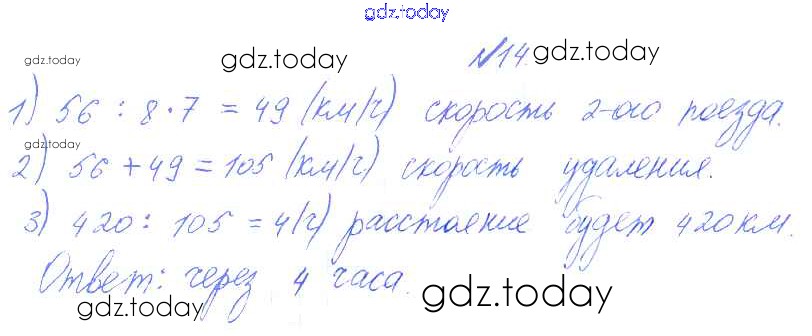 gdz.today
gdz.today gdz.today №14.
1) 56 : 8 · 7 = 49 (км/ч) скорость 2-ого поезда.
gdz.today
2) 56 + 49 = 105 (км/ч) скорость удаления.
3) 420 : 105 = 4 (ч) расстояние будет 420 км.
Ответ: через 4 часа.
gdz.today gdz.today